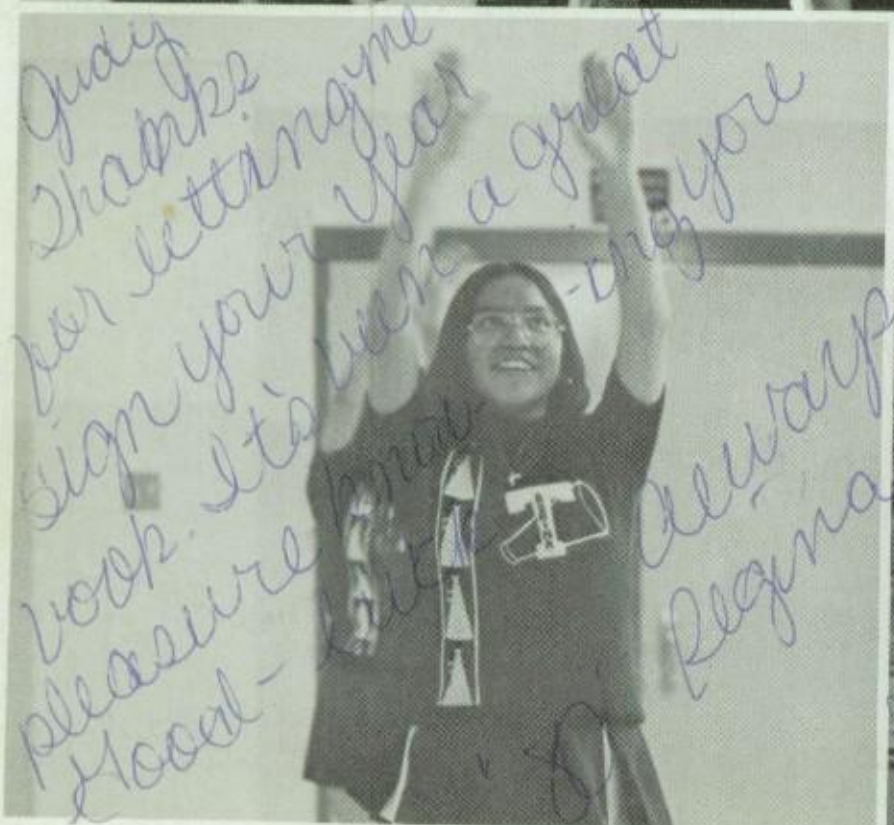 Judy
Thanks
for letting me
sign your year
book. It's been a great
pleasure know-ing you
Good-luck
Always
Regina
T